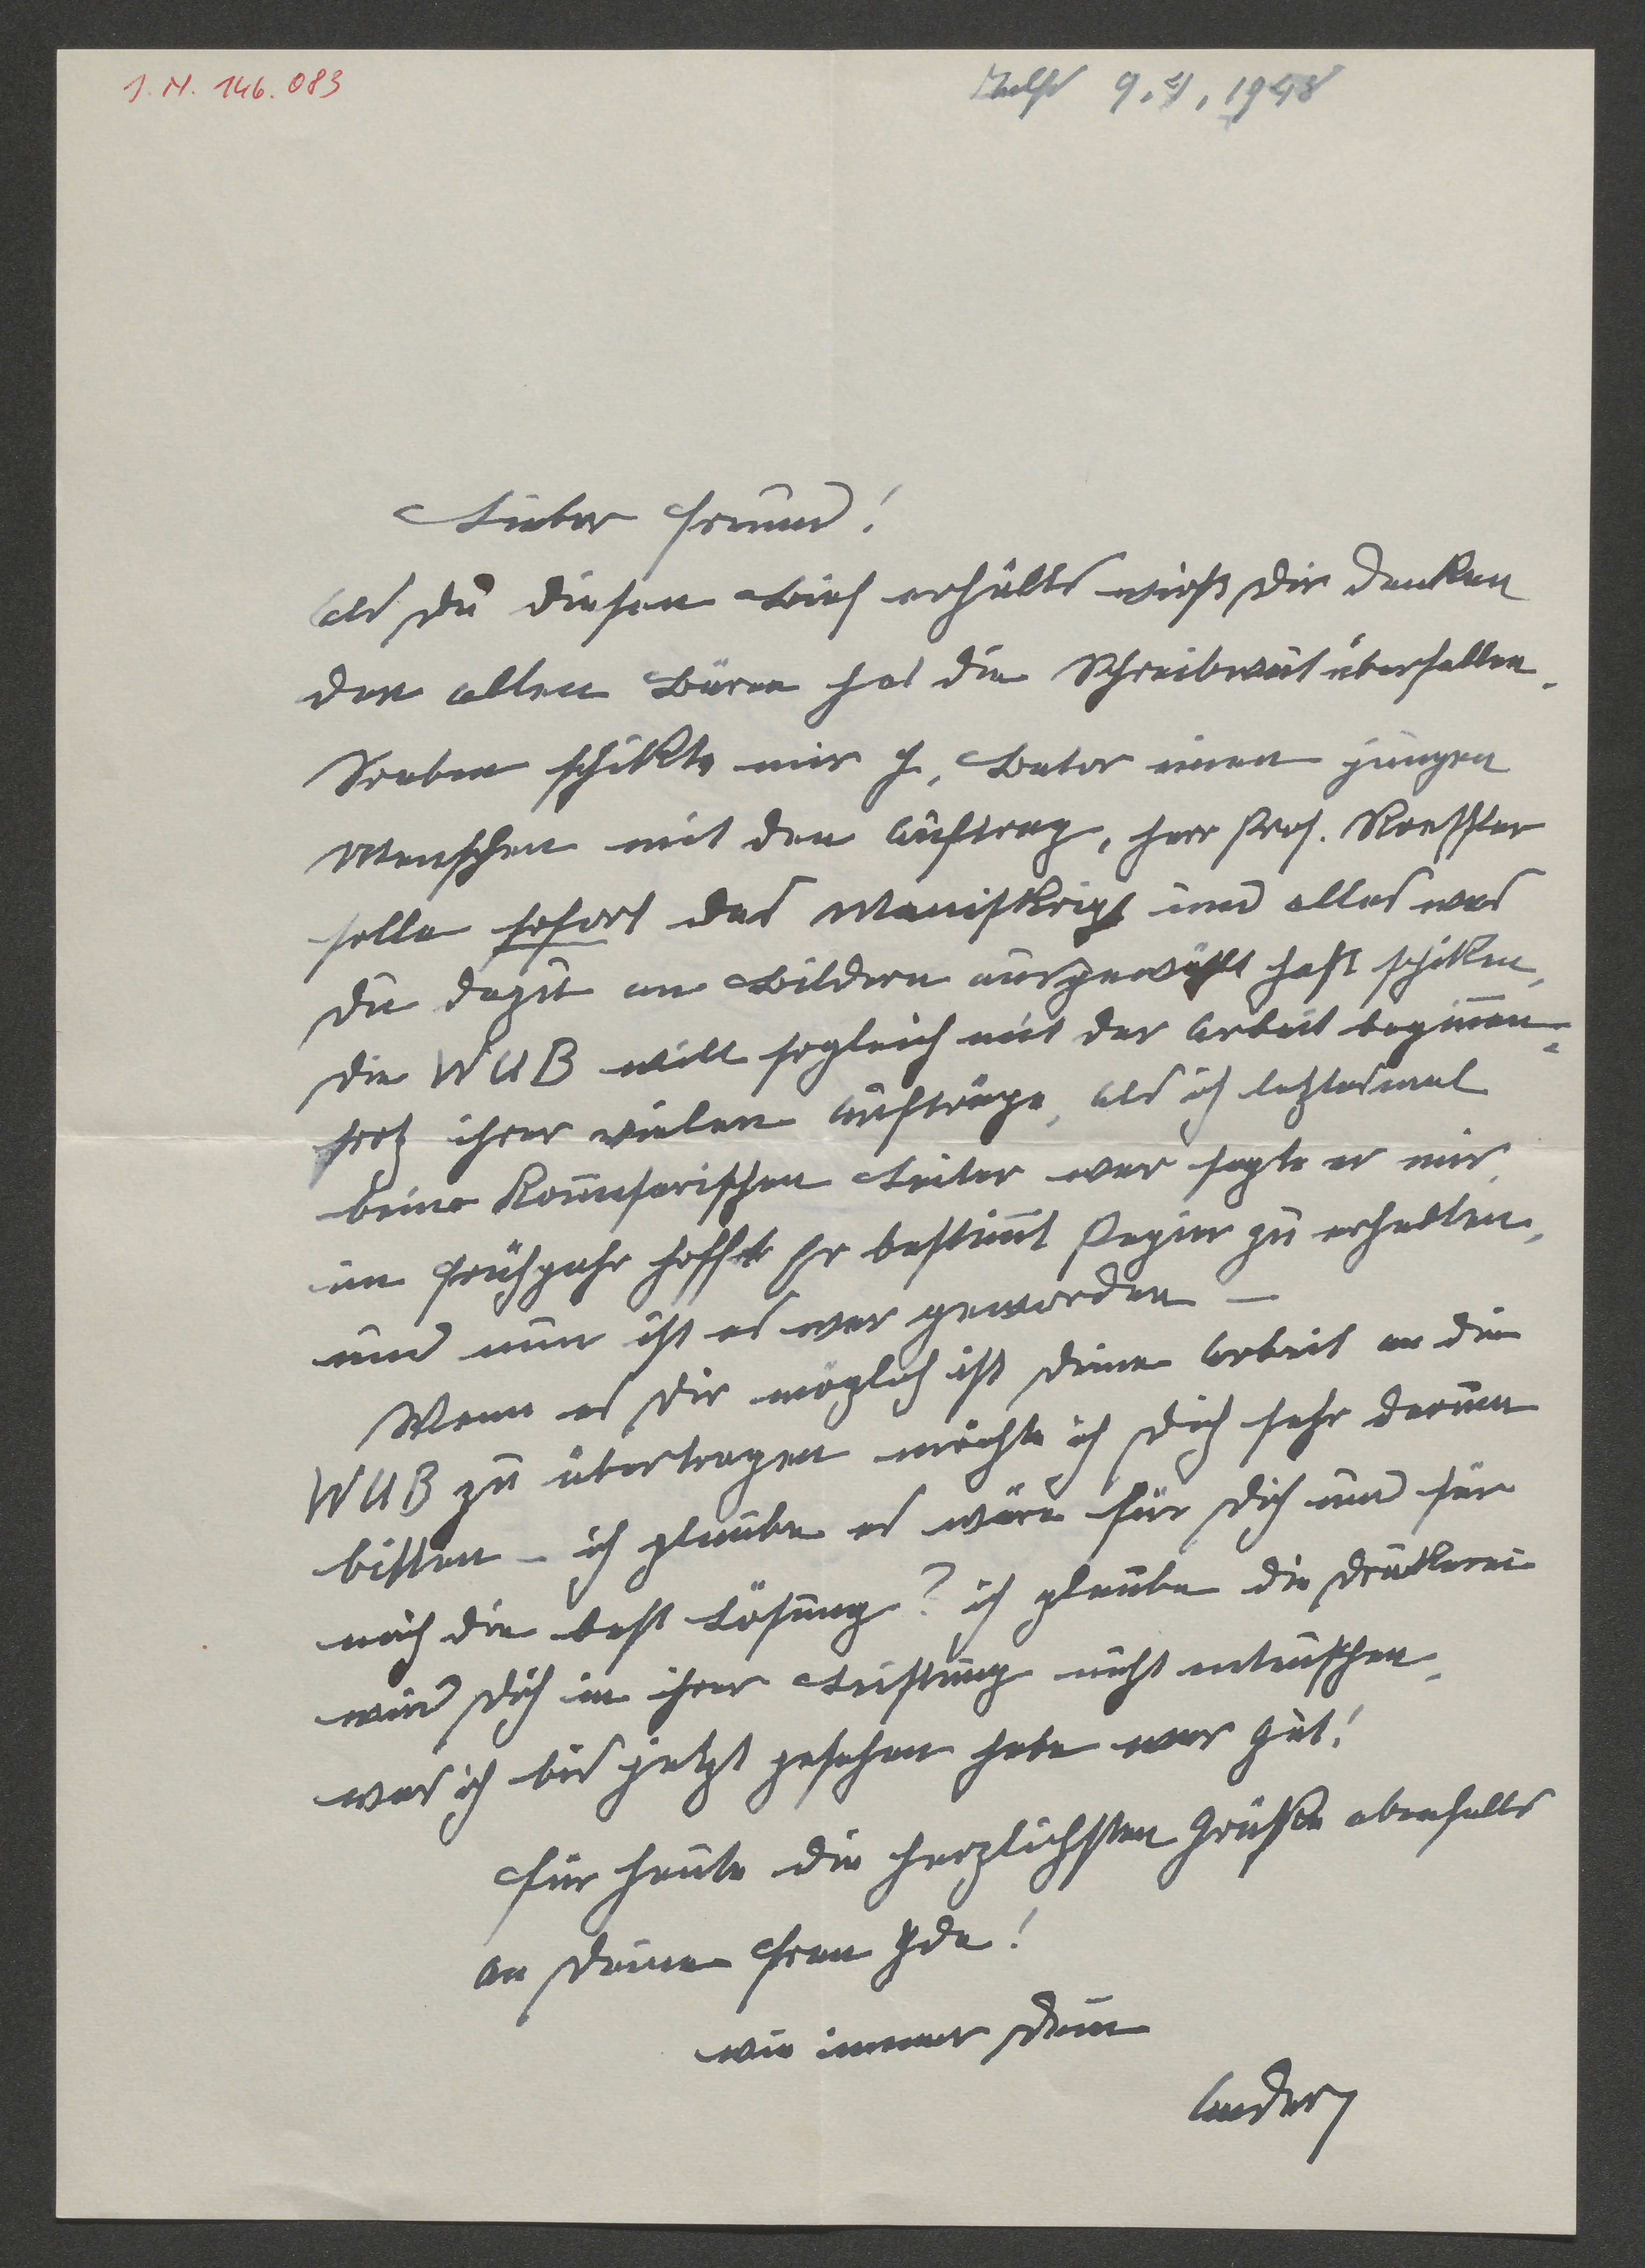 J. N. 146.083
9.4.1948
Lieber Freund!
als Du diesen Brief erhälts wirst Dir denken
den alten Bären hat die Schreibwut überfallen.
Soeben schikte mir H. Bator einen jungen
Menschen mit den Auftrag, Herr Prof. Roessler
solle sofort das Manuskript und alles was
Du dazu an Bildern ausgewählt hast schiken,
die WUB will sogleich mit der Arbeit beginnen,
trotz ihrer vielen Aufträge, als ich letztesmal
beim Komissarischen Leiter war sagte er mir
im Frühjahr hoffte Er bestimmt Papier zu erhalten,
und nun ist es war geworden –
Wenn es Dir möglich ist Deine Arbeit an die
WUB zu übertragen möchte ich Dich sehr darum
bitten – ich glaube es wäre für Dich und für
mich die best Lösung? ich glaube die Drukerei
wird Dich in ihrer Leistung nicht enteuschen,
was ich bis jetzt gesehen habe war gut!
Für heute die herzlichsten Grüße ebenfalls
an Deine Frau Ida!
wie immer Dein
Andery